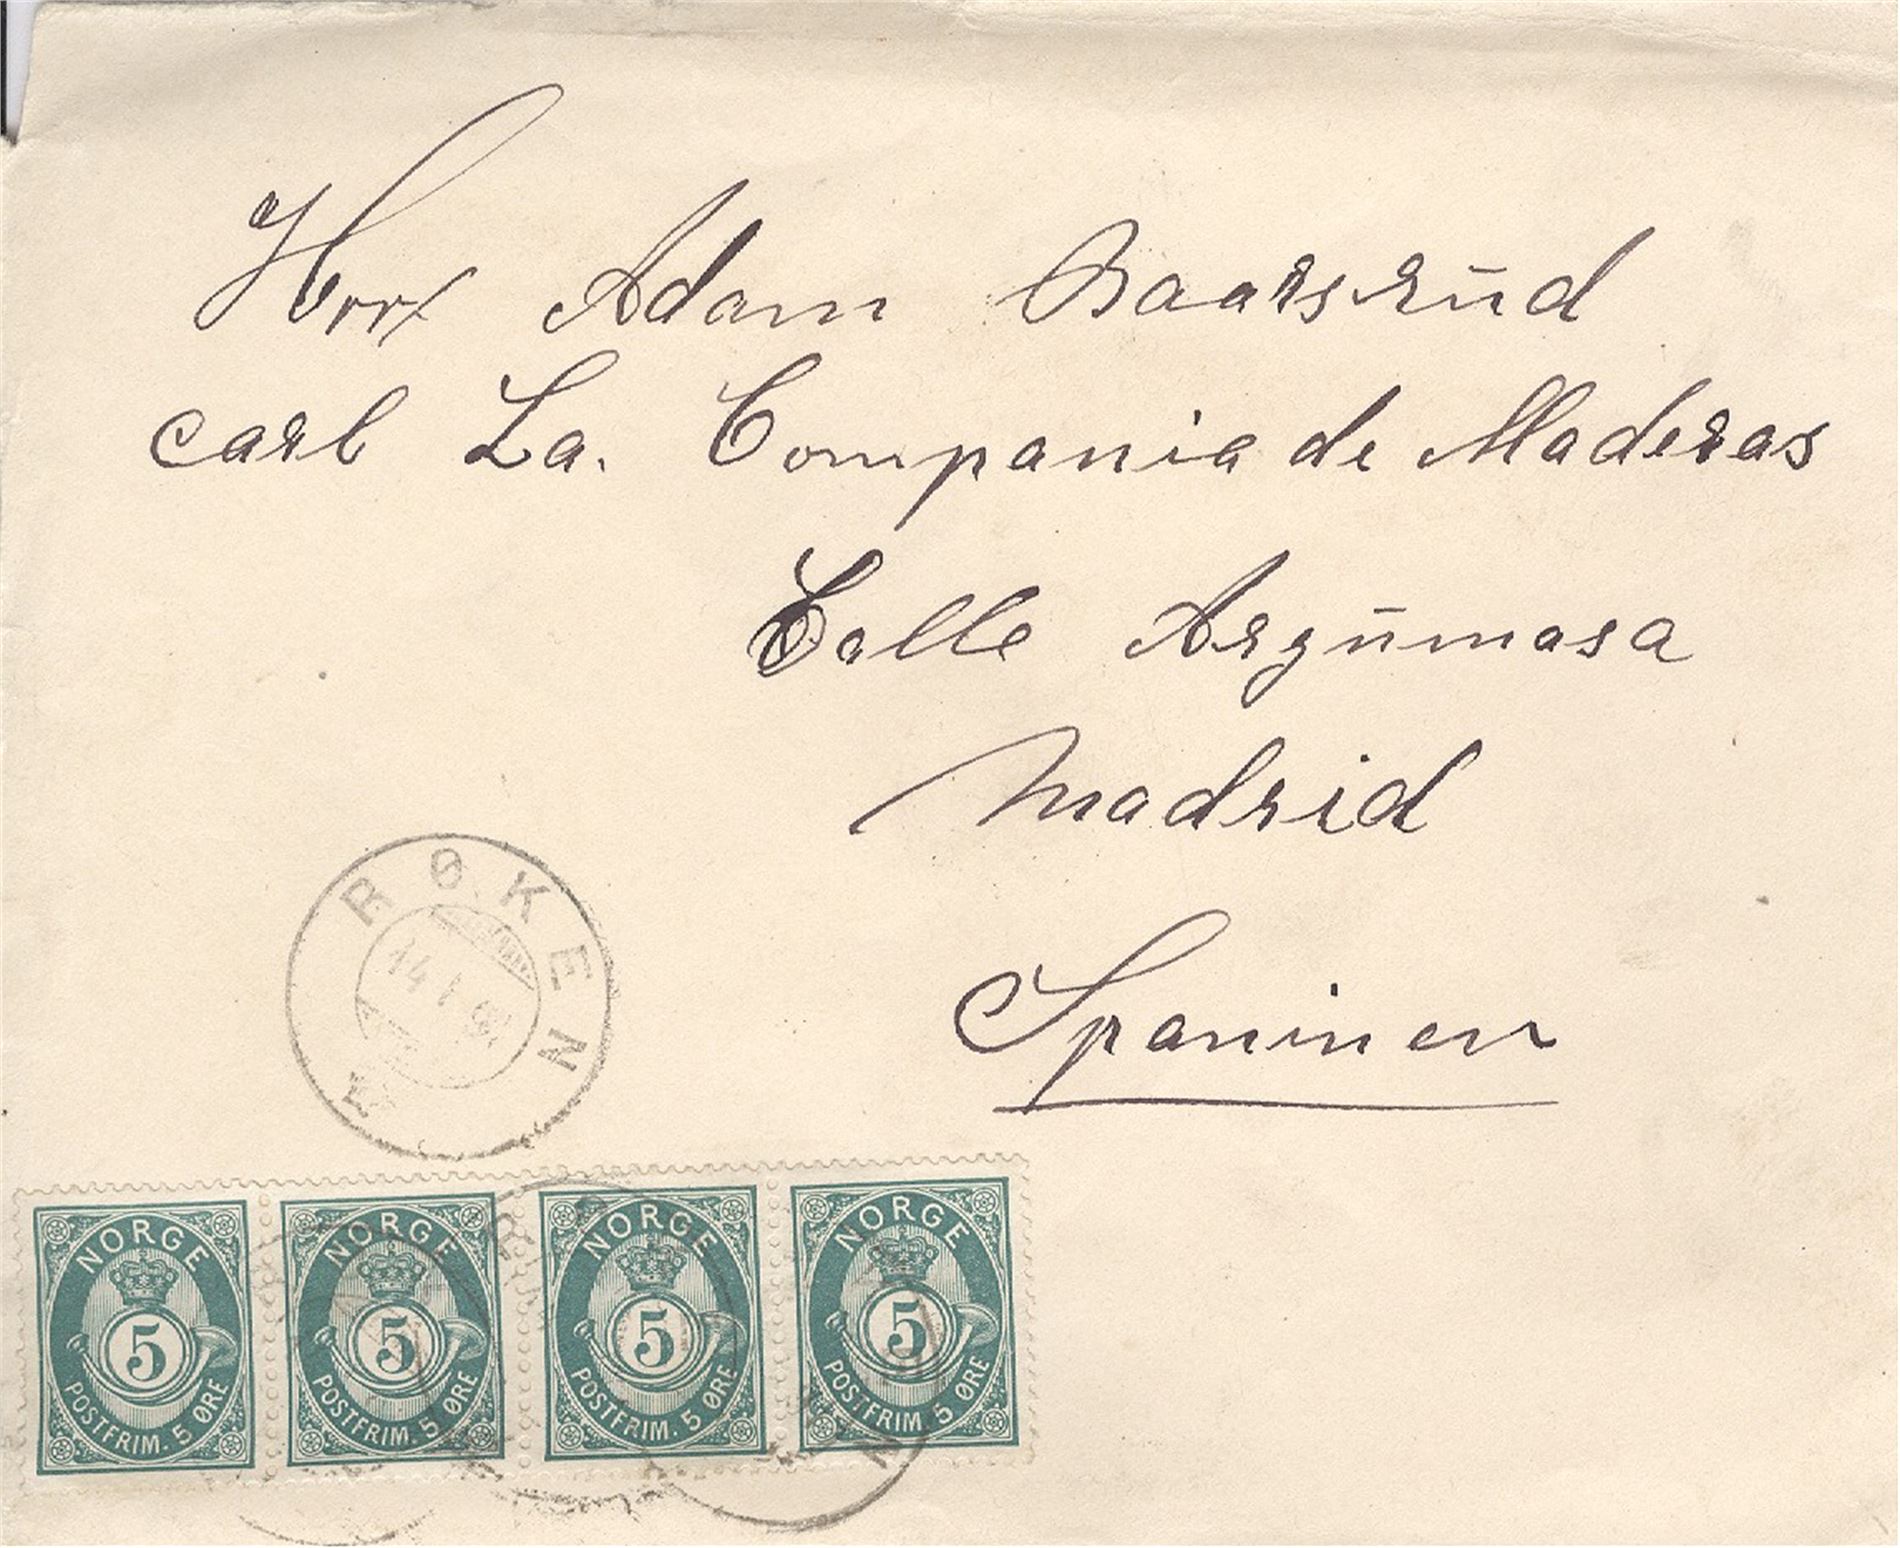 Herr Adam Baarsrūd
carl La. Compania de Maderas
Calle Argūmasa
Madrid
Spaninen
RØKEN
14 I
NORGE
5
POSTFRIM. 5 ØRE
NORGE
5
POSTFRIM. 5 ØRE
NORGE
5
POSTFRIM. 5 ØRE
NORGE
5
POSTFRIM. 5 ØRE